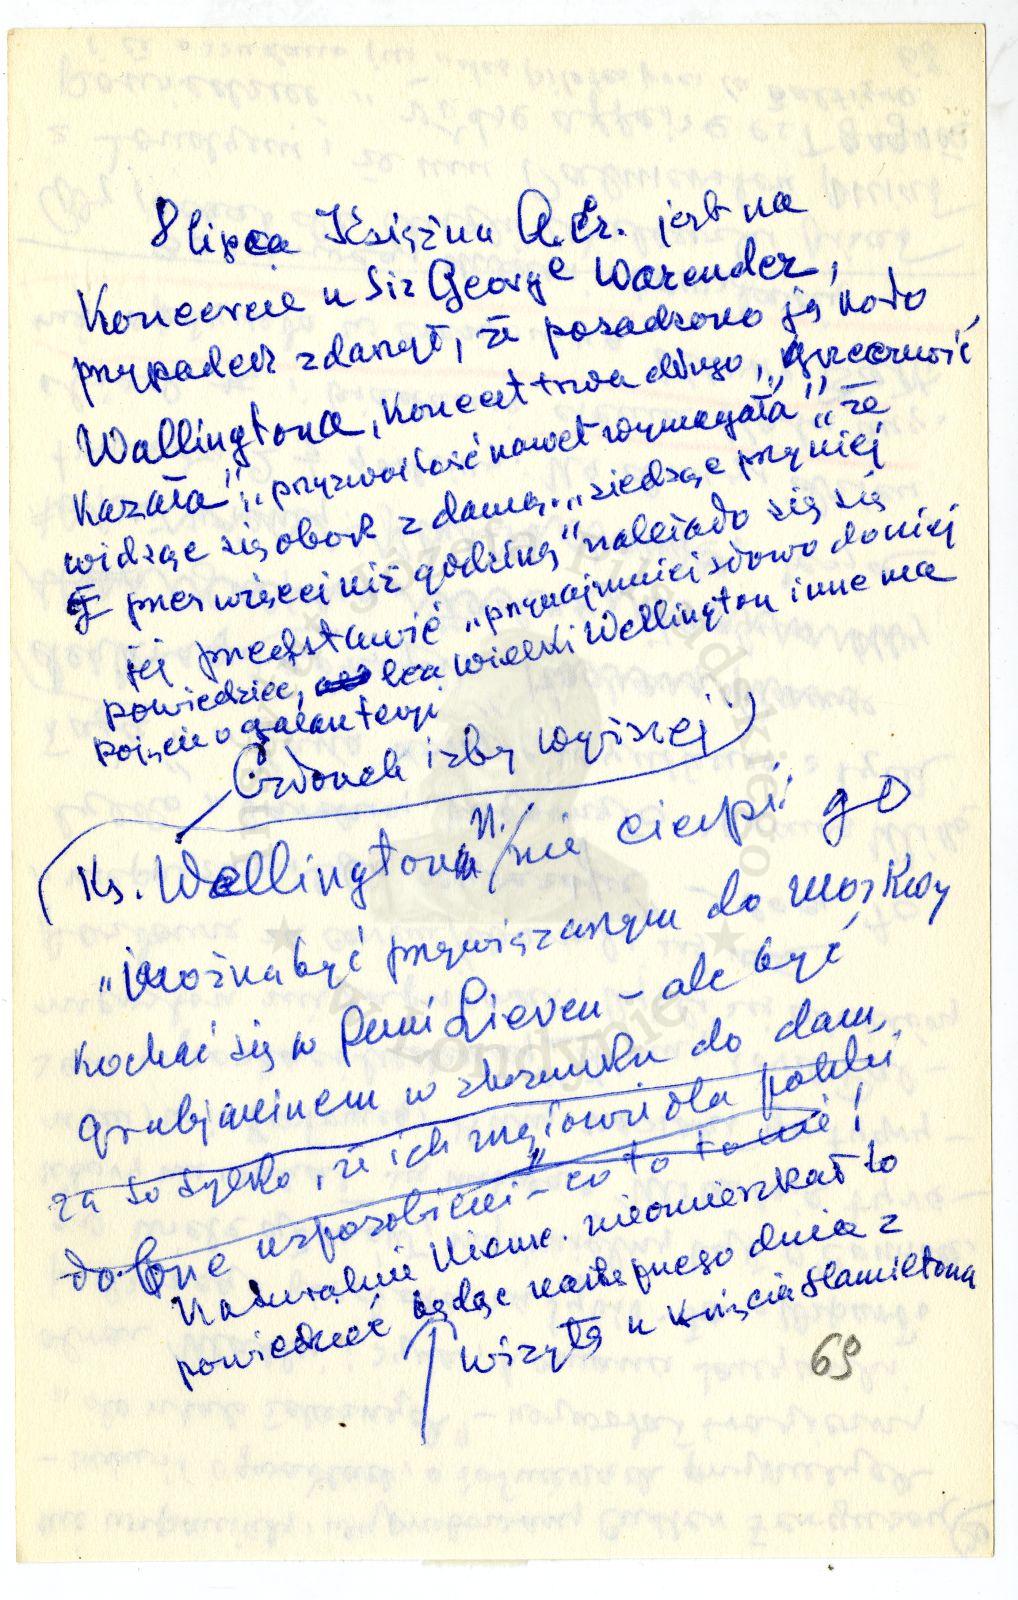 8 lipca Księżna A. Cz. jest na
Koncercie u Sir George Warender,
przypadek zdarzył, że posadzono ją koło
Wallingtona, Koncert trwa długo, "grzeczność
Kazała", "przyzwoitość nawet wymagała" "że
widząc się obok z damą... "siedząc przy niej
przez więcej niż godzinę" należało się się
jej przedstawić "przynajmniej słowo do niej
powiedzieć, lecz wielki Wellington inne ma
pojęcie o galanterji
Członek izby wyższej
Ks. Wellington N. nie cierpi go
"Można być przywiązanym do Moskwy
Kochać się w Pani Lieven - ale być
grubjaninem w stosunku do dam,
za to tylko, że ich mężowie dla polski
dobrze usposobieni - co to to nie!
Naturalnie Niemc. nieomieszkał to
powiedzieć będąc następnego dnia z
wizytą u Księcia Hamiltona
69
w Londynie